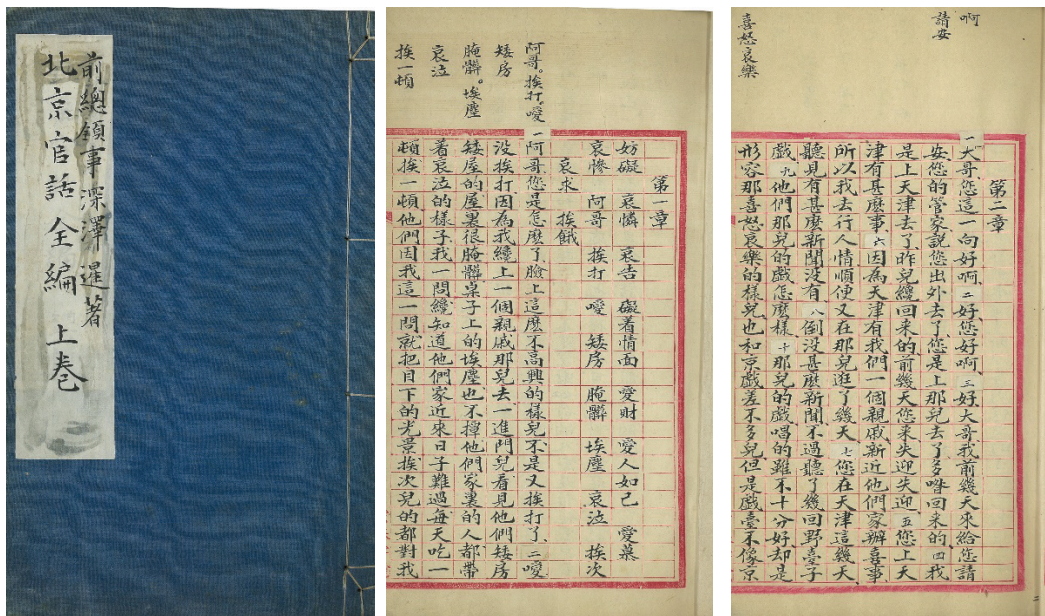 前總領事深澤暹著
北京官話全編 上巻
阿哥。挨打。噯
矮房
腌髒。埃塵
哀泣
挨一頓
第一章
妨礙 哀憐 哀告 礙着情面 愛財 愛人如己 愛慕
哀慘 阿哥 挨打 噯 矮房 腌髒 埃塵 哀泣 挨次
哀求 挨餓
一阿哥您是怎麽了臉上這麽不高興的樣兒不是又挨打了二噯
没挨打因為我纔上一個親戚那兒去一進門兒看見他們矮房
矮屋的屋裏很腌髒桌子上的埃塵也不撣他們家裏的人都帶
着哀泣的樣子我一問纔知道他們家近來日子難過每天吃一
頓挨一頓他們因我這一問就把目下的光景挨次兒的都對我
啊
請安
喜怒哀樂
第二章
一大哥您這一句好啊二好您好啊三好大哥我前幾天來給您請
安您的管家説您出外去了您是上那兒去了多喒回來的四我
是上天津去了昨兒纔回來的前幾天您來失迎失迎五您上天
津有甚麽事六因為天津有我們一個親戚新近他們家辦喜事
所以我去行人情順便又在那兒逛了幾天七您在天津這幾天
聽見有甚麽新聞没有八倒没甚麽新聞不過聽了幾回野臺子
戲九他們那兒的戲怎麽樣十那兒的戲唱的雖不十分好却是
形容那喜怒哀樂的樣兒也和京戲差不多兒但是戲臺不像京
二